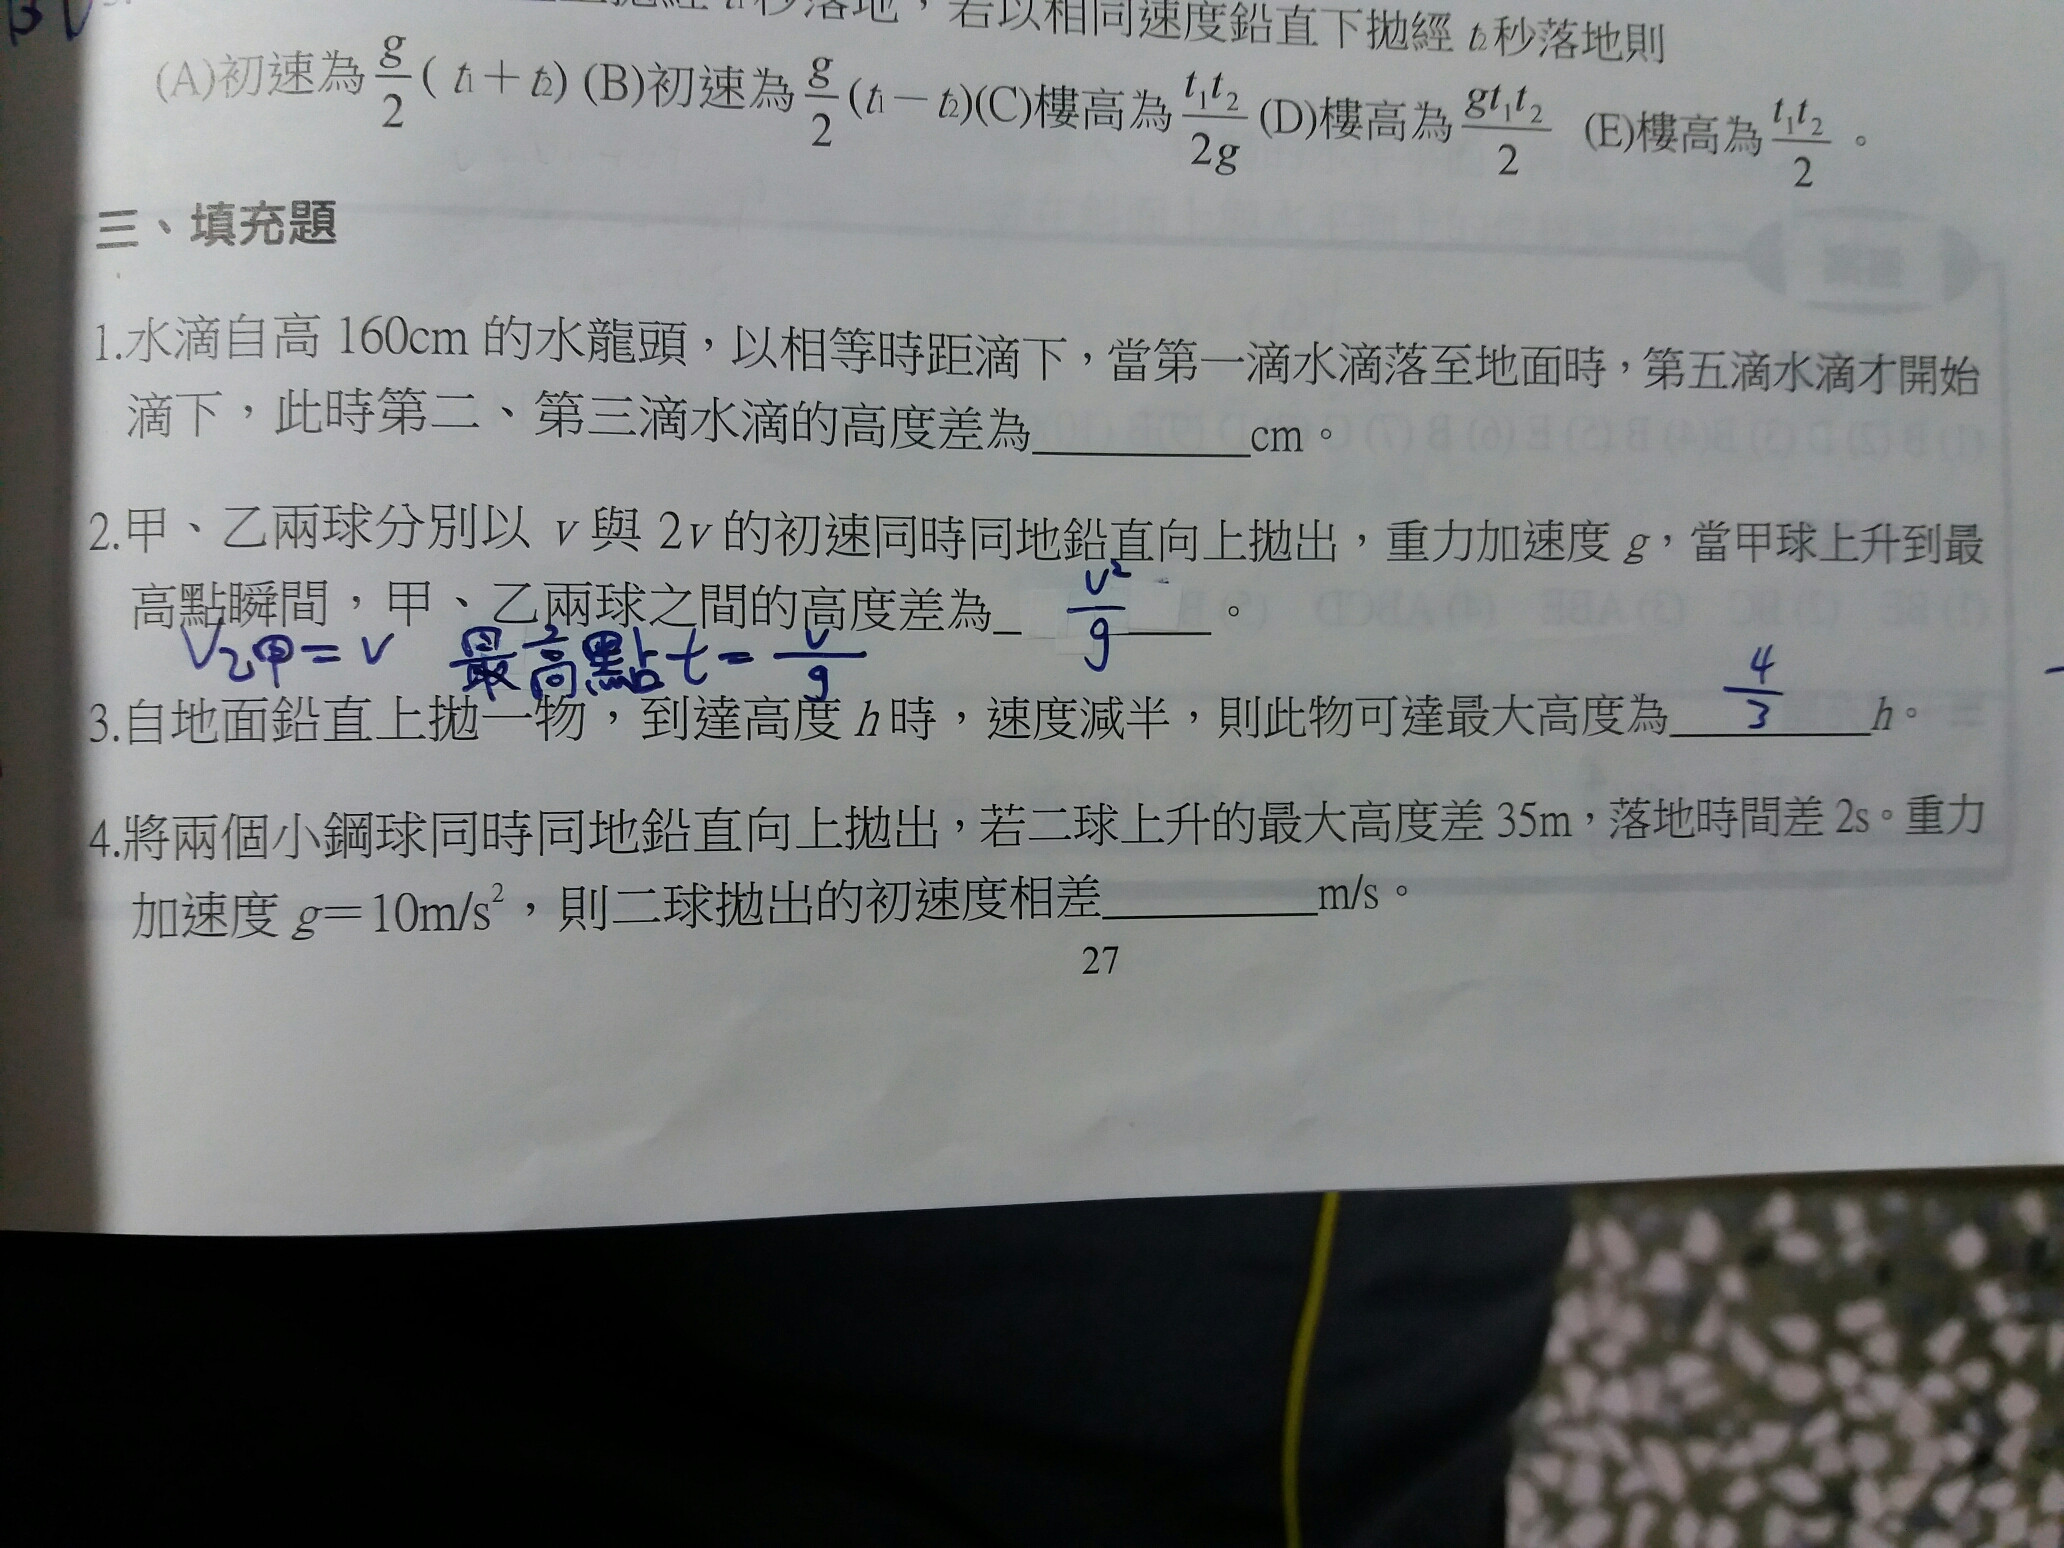 秒落地,若以相同速度鉛直下拋經 t₂ 秒落地則
(A)初速為 g/2 ( t₁ + t₂) (B)初速為 g/2 (t₁ − t₂)(C)樓高為 t₁t₂/2g (D)樓高為 gt₁t₂/2 (E)樓高為 t₁t₂/2 。
三、填充題
1.水滴自高 160cm 的水龍頭,以相等時距滴下,當第一滴水滴落至地面時,第五滴水滴才開始
滴下,此時第二、第三滴水滴的高度差為________cm。
2.甲、乙兩球分別以 v 與 2v 的初速同時同地鉛直向上拋出,重力加速度 g,當甲球上升到最
高點瞬間,甲、乙兩球之間的高度差為_ v²/g ___。
V乙甲=v 最高點 t=v/g
3.自地面鉛直上拋一物,到達高度 h 時,速度減半,則此物可達最大高度為___4/3___h。
4.將兩個小鋼球同時同地鉛直向上拋出,若二球上升的最大高度差 35m,落地時間差 2s。重力
加速度 g=10m/s²,則二球拋出的初速度相差________m/s。
27